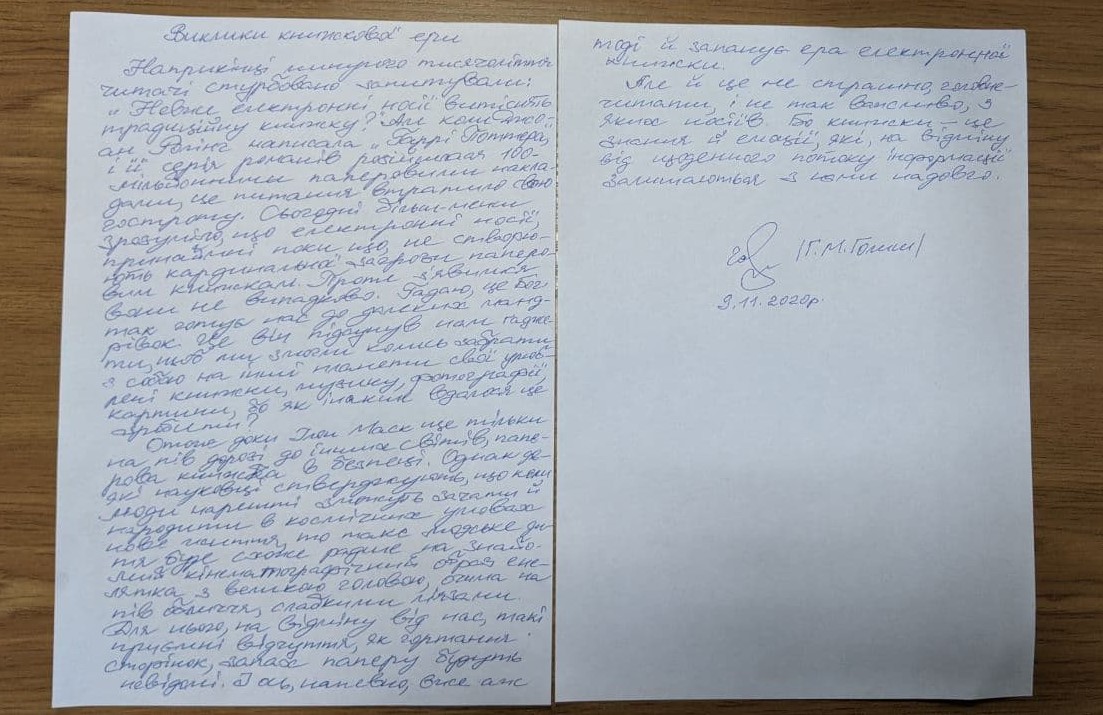 Виклики книжкової ери
Наприкінці минулого тисячоліття
читачі стурбовано запитували:
„Невже електронні носії витіснять
традиційну книжку?" Але коли Джо-
ан Ролінг написала „Гаррі Поттера",
і її серія романів розійшлася 100-
мільйонними паперовими накла-
дами, це питання втратило свою
гостроту. Сьогодні більш-менш
зрозуміло, що електронні носії,
принаймні поки що, не створю-
ють кардинальної загрози паперо-
вим книжкам. Проте з'явилися
вони не випадково. Гадаю, це Бог
так готує нас до далеких манд-
рівок. Це він підсунув нам гадже-
ти, щоб ми змогли колись забрати
з собою на інші планети свої улюб-
лені книжки, музику, фотографії,
картини, бо як інакше вдалося це
зробити?
Отож доки Ілон Маск ще тільки
на пів дорозі до інших світів, папе-
рова книжка в безпеці. Однак де-
які науковці стверджують, що коли
люди нарешті зможуть зачати й
народити в космічних умовах
нове життя, то таке людське ди-
тя буде схоже радше на знайо-
мий кінематографічний образ ене-
лятка з великою головою, очима на
пів обличчя, слабкими м'язами.
Для нього, на відміну від нас, такі
приємні відчуття, як гортання
сторінок, запах паперу будуть
невідомі. І ось, напевно, вже аж
тоді й запанує ера електронної
книжки.
Але й це не страшно, головне-
читати, і не так важливо, з
яких носіїв. Бо книжки – це
знання й емоції, які, на відміну
від щоденного потоку інформації
залишаються з нами надовго.
/Г.М.Гоман/
9.11.2020р.